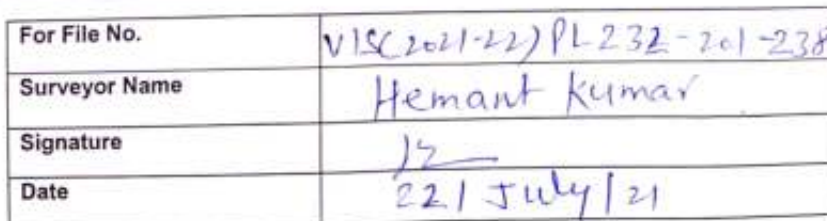 For File No. VIS(2021-22)PL232-201-238
Surveyor Name Hemant Kumar
Signature
Date 22/July/21